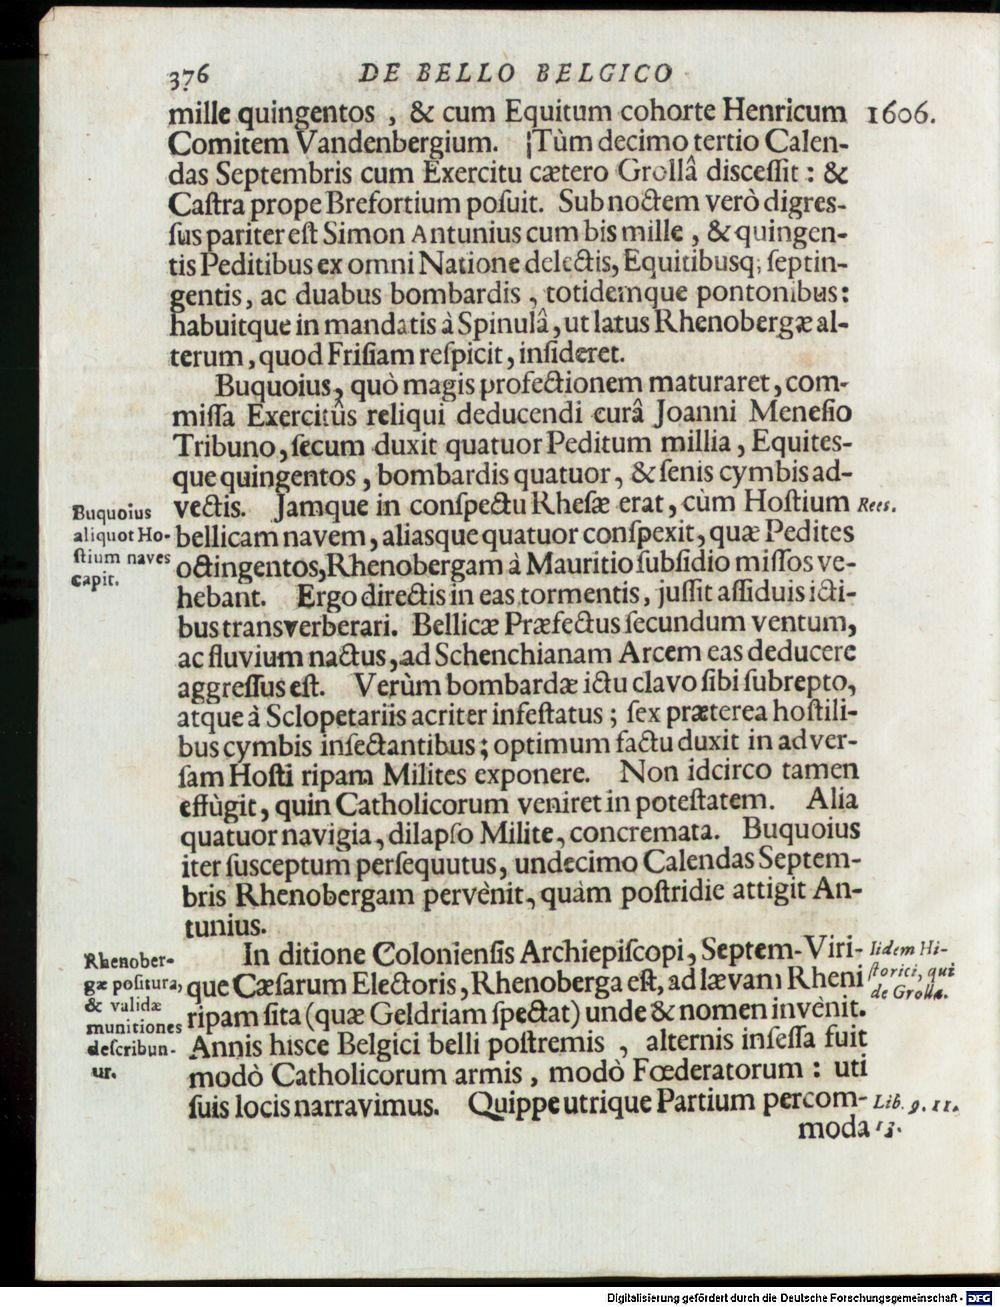 376 DE BELLO BELGICO
mille quingentos , & cum Equitum cohorte Henricum 1606.
Comitem Vandenbergium. Tùm decimo tertio Calen-
das Septembris cum Exercitu cætero Grollâ diſceſſit : &
Caſtra prope Brefortium poſuit. Sub noctem verò digreſ-
ſus pariter eſt Simon Antunius cum bis mille , & quingen-
tis Peditibus ex omni Natione delectis, Equitibusq; ſeptin-
gentis, ac duabus bombardis , totidemque pontonibus:
habuitque in mandatis à Spinulâ, ut latus Rhenobergæ al-
terum, quod Friſiam reſpicit, inſideret.
Buquoius, quò magis profectionem maturaret, com-
miſſa Exercitûs reliqui deducendi curâ Joanni Meneſio
Tribuno, ſecum duxit quatuor Peditum millia, Equites-
que quingentos, bombardis quatuor, & ſenis cymbis ad-
Buquoius
aliquot Ho-
ſtium naves
capit.
vectis. Jamque in conſpectu Rheſæ erat, cùm Hoſtium Rees.
bellicam navem, aliasque quatuor conſpexit, quæ Pedites
octingentos, Rhenobergam à Mauritio ſubſidio miſſos ve-
hebant. Ergo directis in eas tormentis, juſſit aſſiduis icti-
bus transverberari. Bellicæ Præfectus ſecundum ventum,
ac fluvium nactus, ad Schenchianam Arcem eas deducere
aggreſſus eſt. Verùm bombardæ ictu clavo ſibi ſubrepto,
atque à Sclopetariis acriter infeſtatus ; ſex præterea hoſtili-
bus cymbis inſectantibus; optimum factu duxit in adver-
ſam Hoſti ripam Milites exponere. Non idcirco tamen
effùgit, quin Catholicorum veniret in poteſtatem. Alia
quatuor navigia, dilapſo Milite, concremata. Buquoius
iter ſusceptum perſequutus, undecimo Calendas Septem-
bris Rhenobergam pervènit, quàm poſtridie attigit An-
tunius.
Rhenober-
gæ poſitura,
& validæ
munitiones
deſcribun-
ur.
In ditione Colonienſis Archiepiſcopi, Septem-Viri-
que Cæſarum Electoris, Rhenoberga eſt, ad lævam Rheni
ripam ſita (quæ Geldriam ſpectat) unde & nomen invènit.
Iidem Hi-
ſtorici, qui
de Grolla.
Annis hisce Belgici belli poſtremis , alternis inſeſſa fuit
modò Catholicorum armis , modò Fœderatorum : uti
ſuis locis narravimus. Quippe utrique Partium percom- Lib. 9. 11.
moda 13.
Digitalisierung gefördert durch die Deutsche Forschungsgemeinschaft - DFG